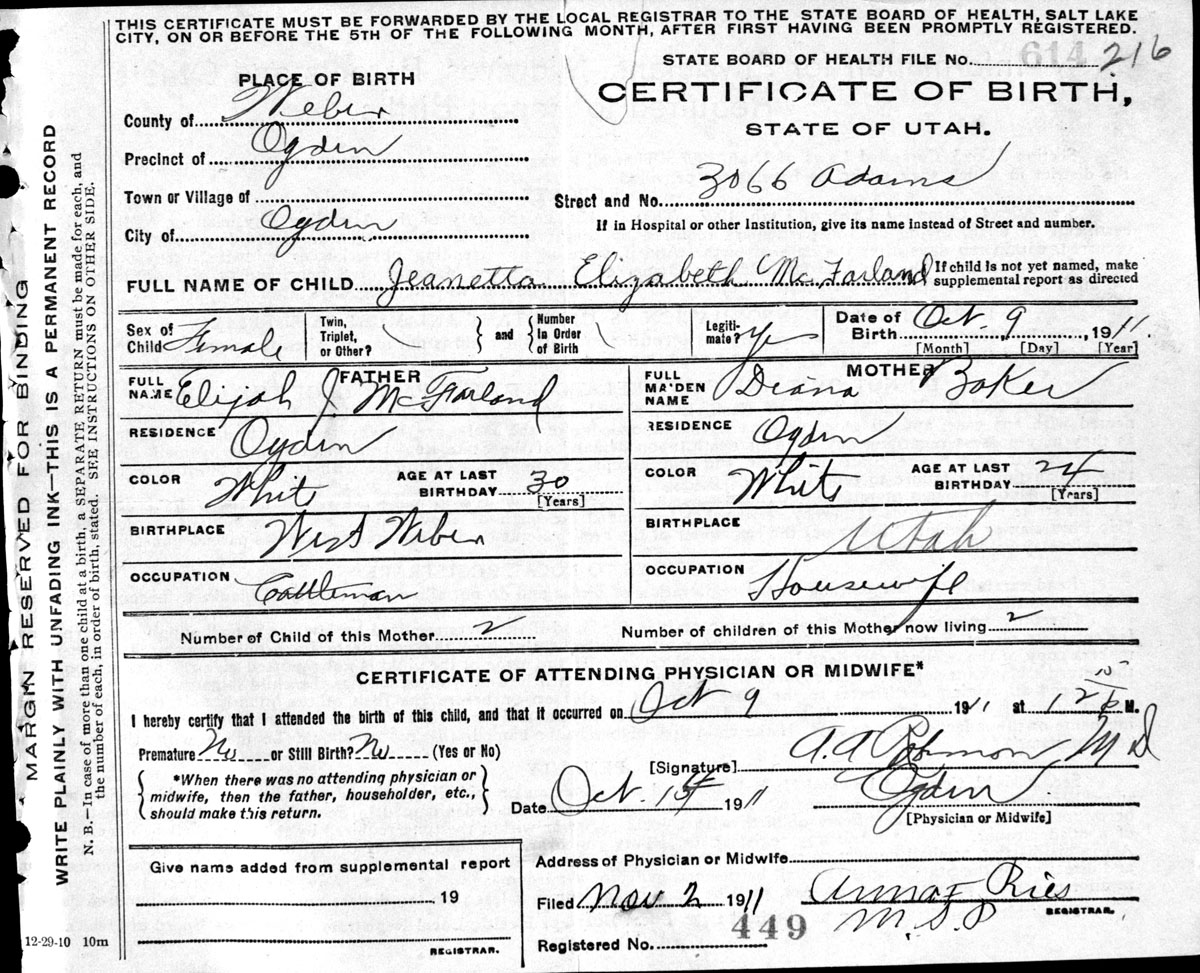 THIS CERTIFICATE MUST BE FORWARDED BY THE LOCAL REGISTRAR TO THE STATE BOARD OF HEALTH, SALT LAKE
CITY, ON OR BEFORE THE 5TH OF THE FOLLOWING MONTH, AFTER FIRST HAVING BEEN PROMPTLY REGISTERED.
STATE BOARD OF HEALTH FILE No. 614 216
PLACE OF BIRTH
CERTIFICATE OF BIRTH,
STATE OF UTAH.
County of Weber
Precinct of Ogden
Town or Village of
Street and No. 3066 Adams
City of Ogden
If in Hospital or other Institution, give its name instead of Street and number.
FULL NAME OF CHILD Jeanetta Elizabeth McFarland
If child is not yet named, make
supplemental report as directed
Sex of Child Female
Twin, Triplet, or Other?
and
Number in Order of Birth
Legiti-mate? Yes
Date of Birth Oct. 9, 1911
[Month] [Day] [Year]
FATHER
FULL NAME Elijah J. McFarland
RESIDENCE Ogden
COLOR White
AGE AT LAST BIRTHDAY 30
[Years]
BIRTHPLACE West Weber
OCCUPATION Cattleman
MOTHER
FULL MAIDEN NAME Diana Baker
RESIDENCE Ogden
COLOR White
AGE AT LAST BIRTHDAY 24
[Years]
BIRTHPLACE Utah
OCCUPATION Housewife
Number of Child of this Mother 2
Number of children of this Mother now living 2
CERTIFICATE OF ATTENDING PHYSICIAN OR MIDWIFE*
I hereby certify that I attended the birth of this child, and that it occurred on Oct 9 1911 at 12 M.
Premature No or Still Birth? No (Yes or No)
[Signature] A. A. Robinson M D
*When there was no attending physician or
midwife, then the father, householder, etc.,
should make this return.
Date Oct. 1911
Ogden
[Physician or Midwife]
Give name added from supplemental report
19
REGISTRAR.
Address of Physician or Midwife
Filed Nov 2 1911
Anna F Ries
M.S.P
REGISTRAR.
Registered No. 449
12-29-10 10m
MARGIN RESERVED FOR BINDING
WRITE PLAINLY WITH UNFADING INK—THIS IS A PERMANENT RECORD
N. B.—In case of more than one child at a birth, a SEPARATE RETURN must be made for each, and
the number of each, in order of birth, stated. SEE INSTRUCTIONS ON OTHER SIDE.